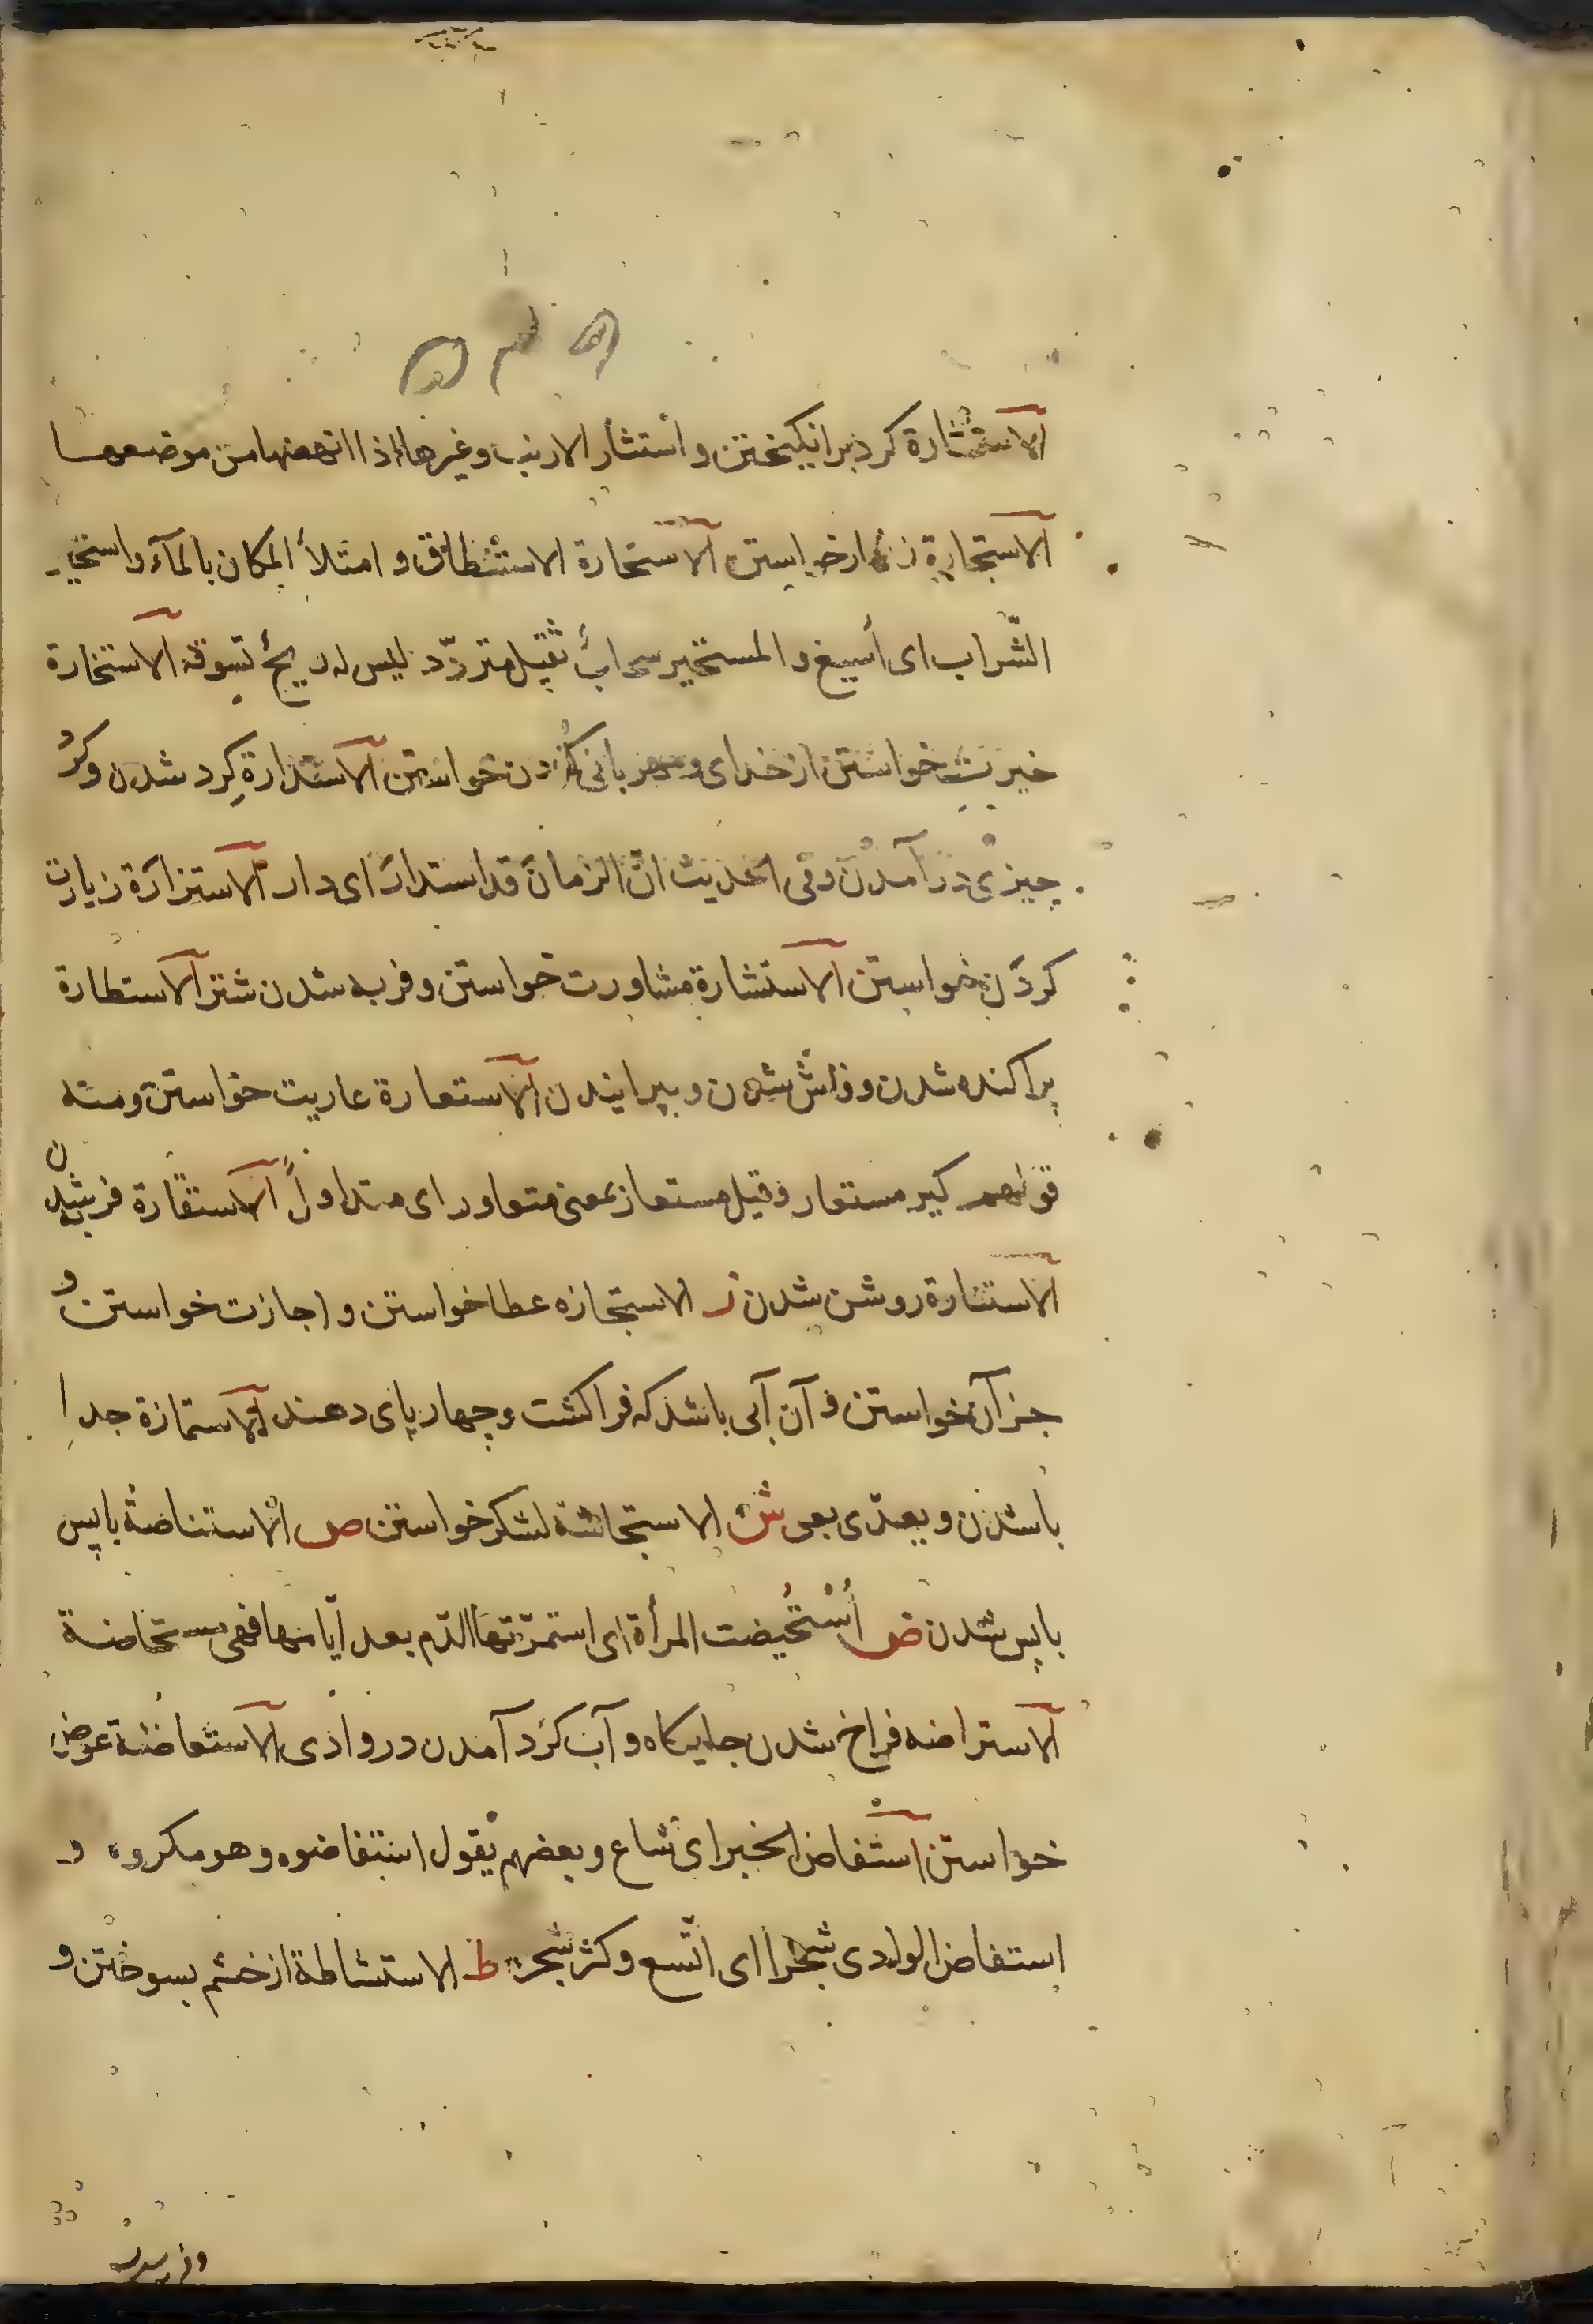 الاستثارة کرد برانکیختن و استثار الارنب وغیرها اذا انهضها من موضعها
الاستجارة زنهار خواستن الاستحارة الاستنطاق و امتلأ المکان بالمآء واستحیر
الشّراب ای أسیغ و المستحیر سحابٌ ثقیل متردّد لیس له ریحٌ تسوقه الاستخارة
خیریت خواستن از خدای و مهربانی کردن خواستن الاستدارة کرد شدن وکرد
چیزی درآمدن وفی الحدیث انّ الزمان قد استدار ای دار الاستزارة زیارت
کردن خواستن الاستشارة مشاورت خواستن و فربه شدن شتر الاستطارة
پراکنده شدن و فاش شدن و بپرانیدن الاستعارة عاریت خواستن ومنه
قولهم کیر مستعار وقیل مستعار بمعنی متعاور ای متداول الاستقارة فربه شدن
الاستنارة روشن شدن ز الاستجازه عطا خواستن و اجازت خواستن و
جز آن خواستن و آن آبی باشد که فرا کشت و چهارپای دهند الاستمازة جدا
باشدن و یعدّی بعن ش الاستجاشة لشکر خواستن ص الاستناصة باپس
باپس شدن ض اُسْتُحیضت المرأة ای استمرّ بها الدّم بعد أیّامها فهی مستحاضة
الاستراضه فراخ شدن جایکاه و آب کرد آمدن در وادی الاستعاضة عوض
خواستن استفاض الخبر ای شاع و بعضهم یقول استفاضوه وهو مکروه و
استفاض الوادی شجراً ای اتّسع وکثر شجره ط الاستشاطة از خشم بسوختن و